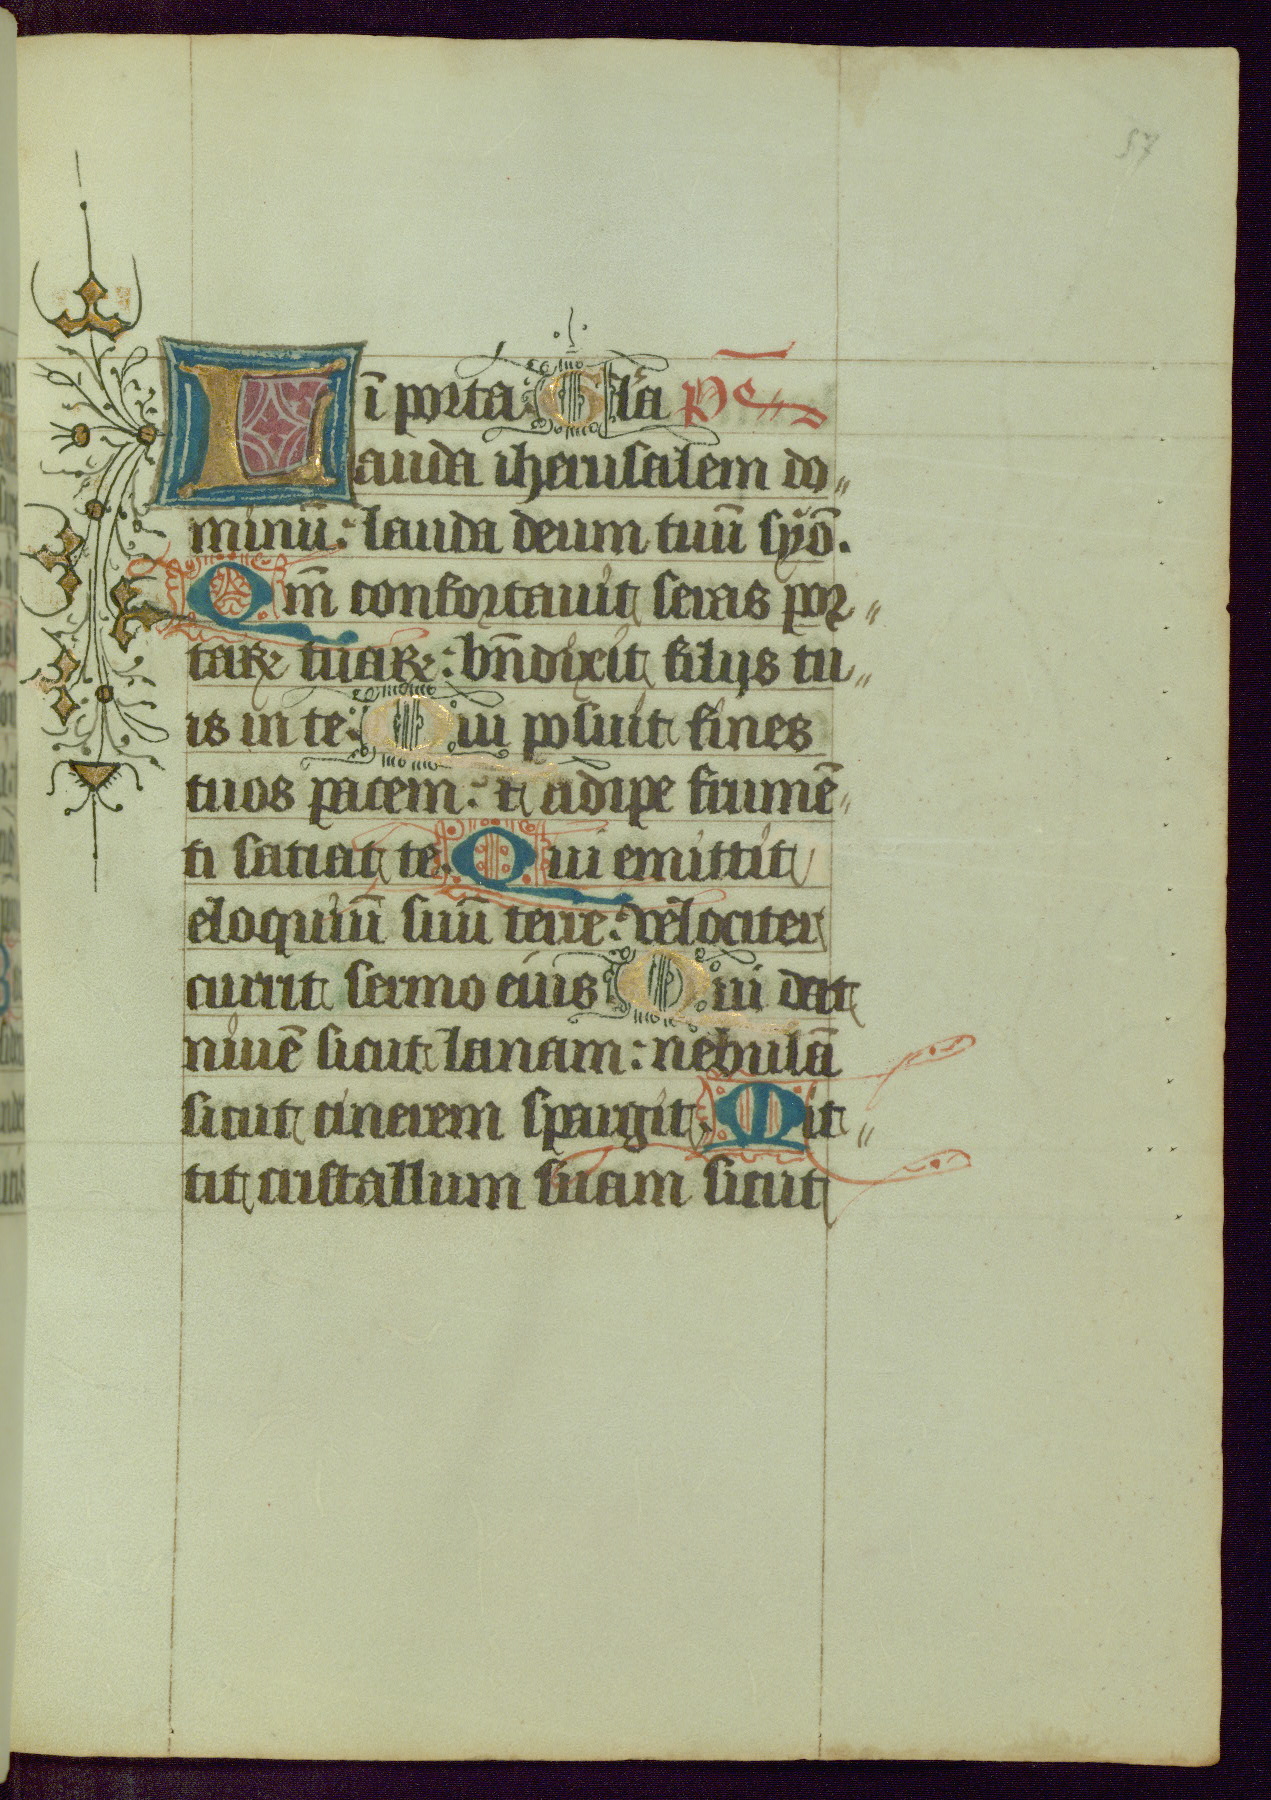 57
ī porta. Gl'a p̄s
Lauda iherusalem do„
minū: lauda deum tuū syō.
Qm̄ confortauit seras por„
taꝝ tuaꝝ: bn̄dixit filijs tu„
is in te. Qui posuit fines
tuos pacem: et adipe frumē„
ti satiat te. Qui emittit
eloquiū suū terre: velociter
currit sermo eius Qui dat
niuē sicut lanam: nebulā
sicut cinerem spargit. Mit„
tit cristallum suam sicut